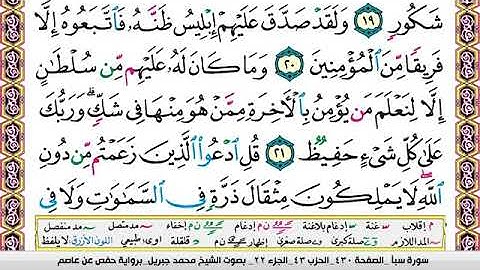 شَكُورٍ ۝١٩ وَلَقَدْ صَدَّقَ عَلَيْهِمْ إِبْلِيسُ ظَنَّهُۥ فَٱتَّبَعُوهُ إِلَّا
فَرِيقًا مِّنَ ٱلْمُؤْمِنِينَ ۝٢٠ وَمَا كَانَ لَهُۥ عَلَيْهِم مِّن سُلْطَٰنٍ
إِلَّا لِنَعْلَمَ مَن يُؤْمِنُ بِٱلْءَاخِرَةِ مِمَّنْ هُوَ مِنْهَا فِى شَكٍّ ۗ وَرَبُّكَ
عَلَىٰ كُلِّ شَىْءٍ حَفِيظٌ ۝٢١ قُلِ ٱدْعُوا۟ ٱلَّذِينَ زَعَمْتُم مِّن دُونِ
ٱللَّهِ ۖ لَا يَمْلِكُونَ مِثْقَالَ ذَرَّةٍ فِى ٱلسَّمَٰوَٰتِ وَلَا فِى
م إقلاب ـّ غنة إدغام بلاغنة إدغام ن م إخفاء مد متصل مد منفصل
صلة كبرى صلة صغرى إظهار ن م قلقلة اوى: طبيعي اللون الأزرق: لا يلفظ
سورة سبأ _الصفحة ٤٣٠_ الحزب ٤٣_ الجزء ٢٢ _ بصوت الشيخ محمد جبريل_برواية حفص عن عاصم